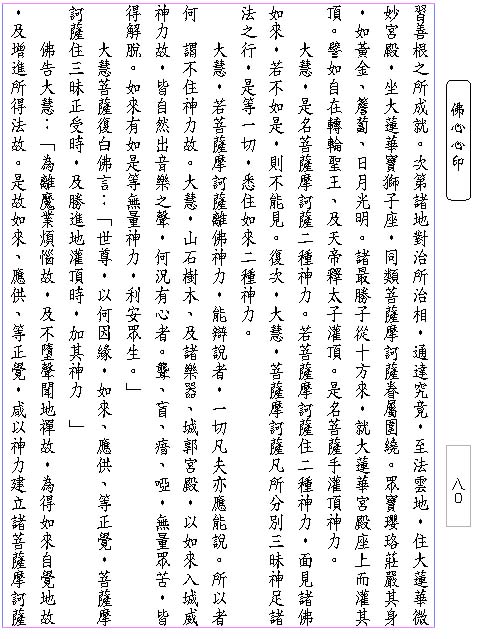 佛心心印
八〇
習善根之所成就。次第諸地對治所治相，通達究竟，至法雲地，住大蓮華微
妙宮殿，坐大蓮華寶獅子座，同類菩薩摩訶薩眷屬圍繞。眾寶瓔珞莊嚴其身
，如黃金、薝蔔、日月光明。諸最勝子從十方來，就大蓮華宮殿座上而灌其
頂。譬如自在轉輪聖王、及天帝釋太子灌頂。是名菩薩手灌頂神力。
大慧，是名菩薩摩訶薩二種神力。若菩薩摩訶薩住二種神力，面見諸佛
如來，若不如是，則不能見。復次，大慧，菩薩摩訶薩凡所分別三昧神足諸
法之行，是等一切，悉住如來二種神力。
大慧，若菩薩摩訶薩離佛神力，能辯說者，一切凡夫亦應能說。所以者
何　謂不住神力故。大慧，山石樹木、及諸樂器、城郭宮殿，以如來入城威
神力故，皆自然出音樂之聲，何況有心者。聾、盲、瘖、啞，無量眾苦，皆
得解脫。如來有如是等無量神力，利安眾生。」
大慧菩薩復白佛言：「世尊，以何因緣，如來、應供、等正覺，菩薩摩
訶薩住三昧正受時，及勝進地灌頂時，加其神力　」
佛告大慧：「為離魔業煩惱故，及不墮聲聞地禪故，為得如來自覺地故
，及增進所得法故。是故如來、應供、等正覺，咸以神力建立諸菩薩摩訶薩